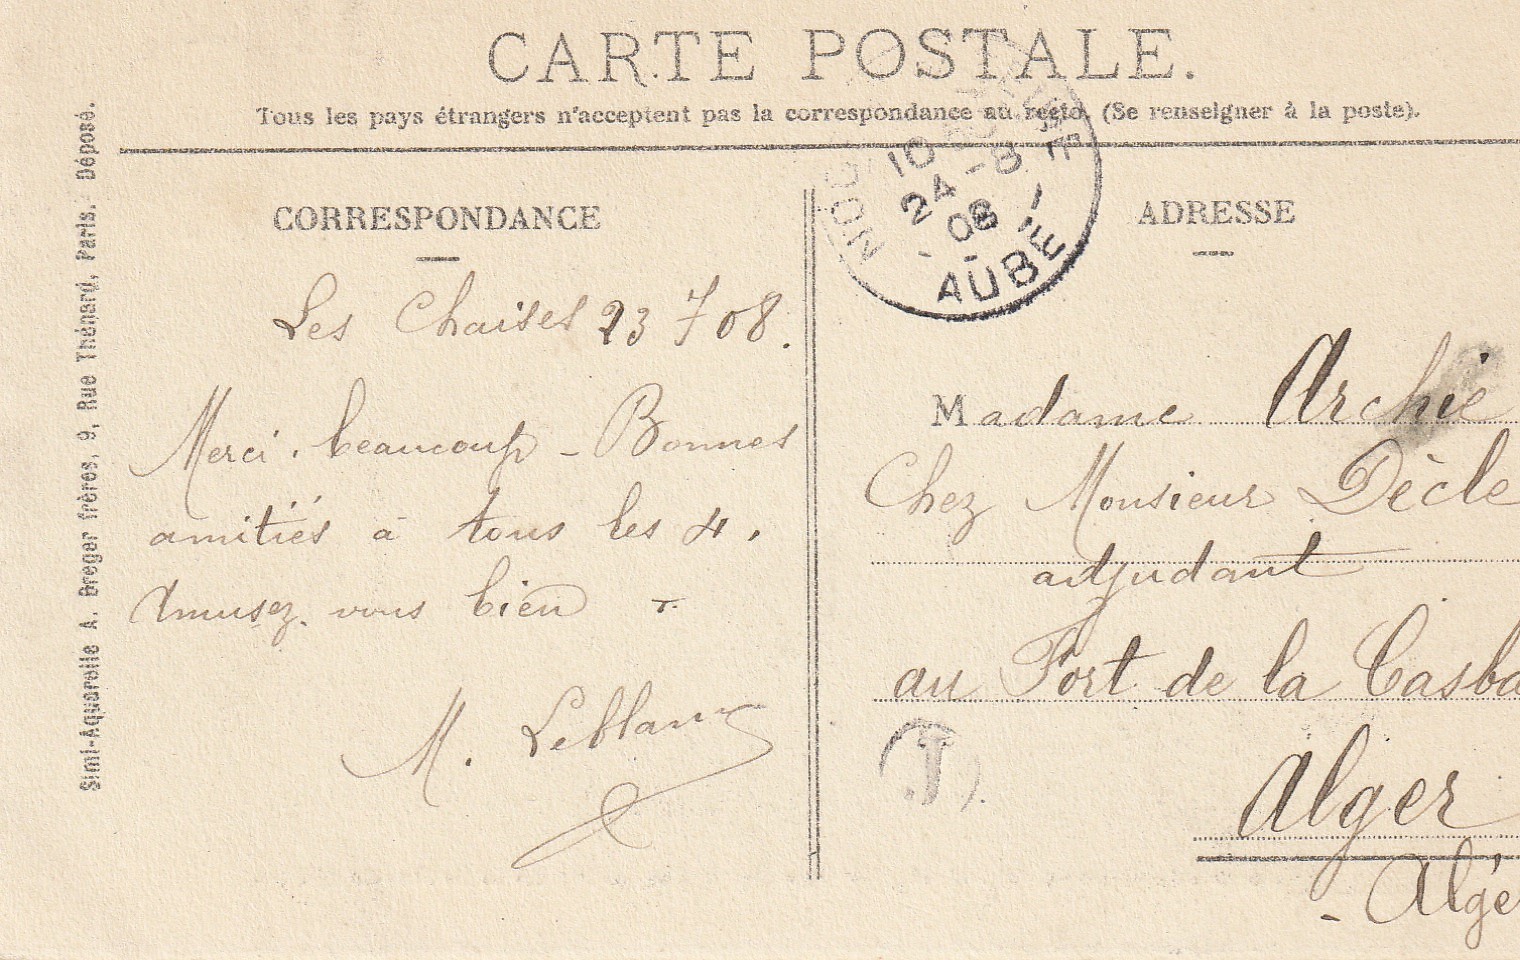 CARTE POSTALE.
Tous les pays étrangers n'acceptent pas la correspondance au recto. (Se renseigner à la poste).
CORRESPONDANCE
Les Chaises 23 7 08.
Merci beaucoup - Bonnes
amitiés à tous les 4.
Amusez vous bien
M. Leblanc
Simi-Aquarelle A. Breger frères, 9, Rue Thénard, Paris. Déposé.
10
24 -8
08
AUBE
ADRESSE
Madame Archie
Chez Monsieur Dècle
adjudant
au Fort de la Casba
T
Alger
- Algé